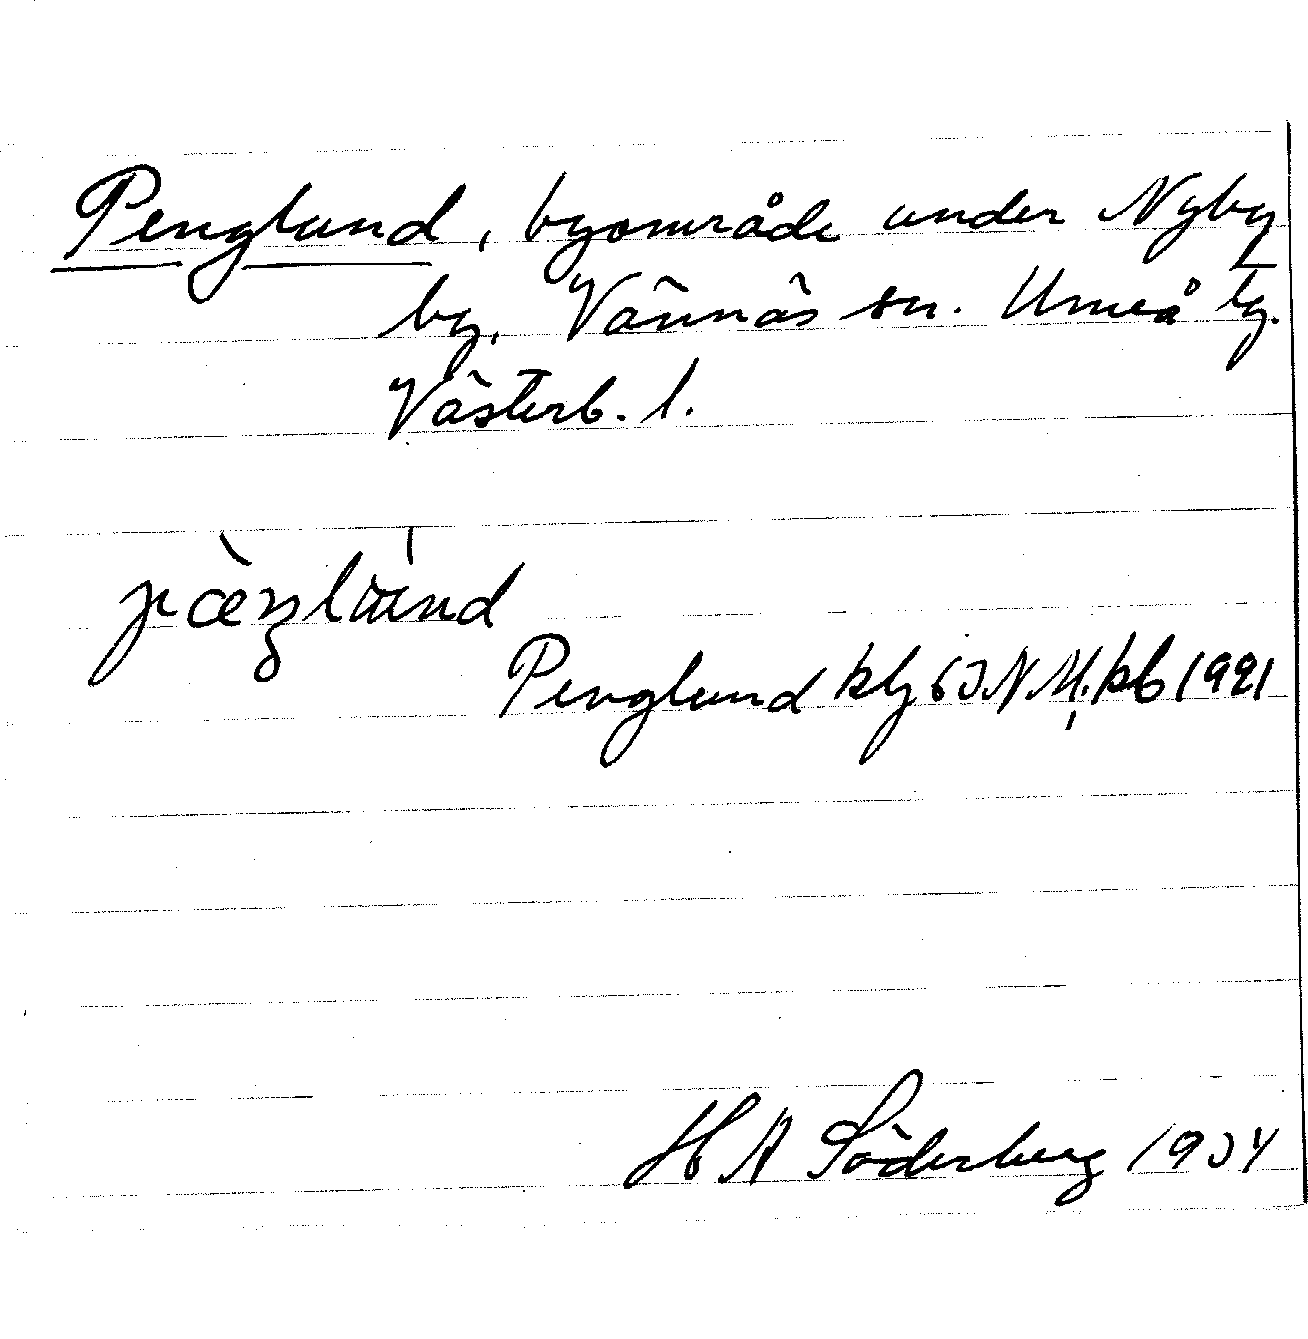 Penglund, byområde under Nyby
by, Vännäs sn. Umeå tg.
Västerb. l.
Penglund ktbl 63 N.V. kb 1921
H A Söderberg 1934